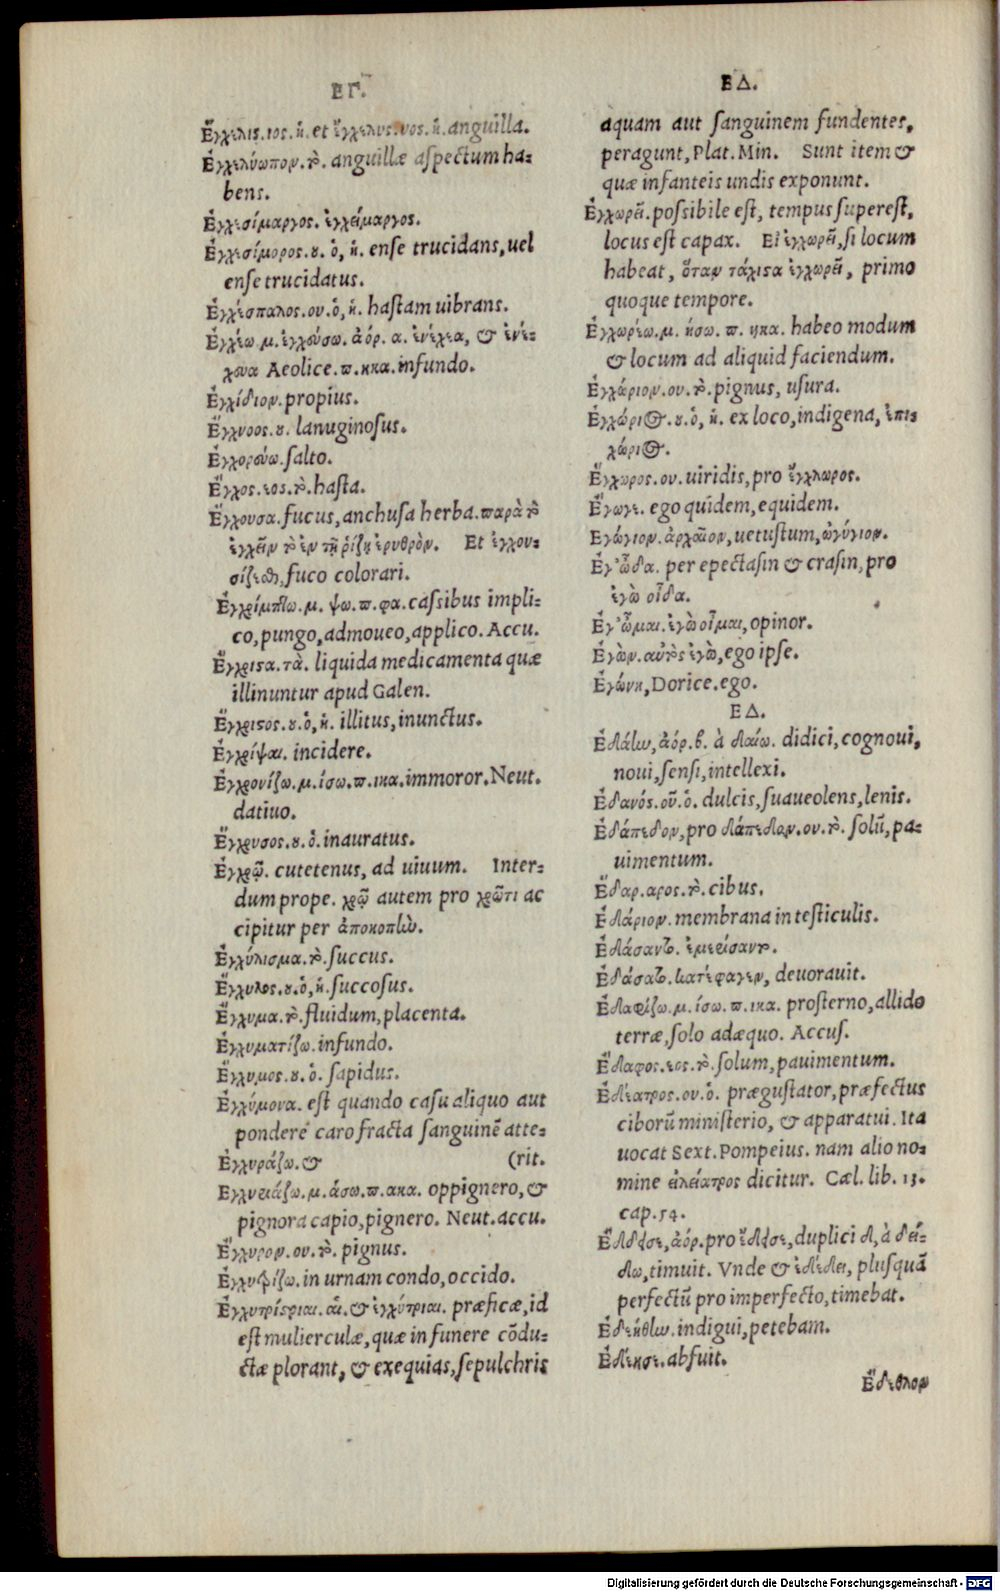 ΕΓ.
Ἔγχελις.ιος.ἡ. et ἔγχελυς.υος.ἡ. anguilla.
Ἐγχελύωπον.τὸ. anguillæ aſpectum ha-
bens.
Ἐγχεσίμαργος. ἐγχείμαργος.
Ἐγχεσίμορος.ου. ὁ, ἡ. enſe trucidans, uel
enſe trucidatus.
Ἐγχέσπαλος.ου.ὁ, ἡ. haſtam uibrans.
Ἐγχέω.μ.ἐγχούσω. ἀόρ. α. ἐνέχεα, & ἐνέ-
χουα Aeolice.π.κκα.infundo.
Ἐγχίδιον.propius.
Ἔγχνοος.ου. lanuginoſus.
Ἐγχορεύω.ſalto.
Ἔγχος.εος.τὸ.haſta.
Ἔγχουσα.fucus, anchuſa herba.παρὰ τὸ
ἐγχεῖν τὸ ἐν τῇ ῥίζῃ ἐρυθρὸν. Et ἐγχου-
σίζεσθαι, fuco colorari.
Ἐγχρίμπτω.μ. ψω.π.φα. caſsibus impli-
co, pungo, admoueo, applico. Accu.
Ἔγχριστα.τὰ. liquida medicamenta quæ
illinuntur apud Galen.
Ἔγχριστος.ου.ὁ, ἡ. illitus, inunctus.
Ἐγχρίψαι. incidere.
Ἐγχρονίζω.μ.ίσω.π.ικα.immoror. Neut.
datiuo.
Ἔγχρυσος.ου.ὁ.inauratus.
Ἐγχρῷ. cutetenus, ad uiuum. Inter-
dum prope. χρῷ autem pro χρῶτι ac
cipitur per ἀποκοπὴν.
Ἐγχύλισμα.τὸ.ſuccus.
Ἔγχυλος.ου.ὁ, ἡ.ſuccoſus.
Ἔγχυμα.τὸ.fluidum, placenta.
Ἐγχυματίζω.infundo.
Ἔγχυμος.ου.ὁ. ſapidus.
Ἐγχύμονα. eſt quando caſu aliquo aut
pondere caro fracta ſanguinē atte-
Ἐγχυράζω.& (rit.
Ἐγχυειάζω.μ.άσω.π.ακα. oppignero, &
pignora capio, pignero. Neut.accu.
Ἔγχυρον.ου.τὸ. pignus.
Ἐγχυτρίζω.in urnam condo, occido.
Ἐγχυτρίστριαι.αἱ.& ἐγχύτριαι. præficæ, id
eſt mulierculæ, quæ in funere cōdu-
ctæ plorant, & exequias, ſepulchris
ΕΔ.
aquam aut ſanguinem fundentes,
peragunt, Plat. Min. Sunt item &
quæ infanteis undis exponunt.
Ἐγχωρεῖ.poſsibile eſt, tempus ſupereſt,
locus eſt capax. Εἰ ἐγχωρεῖ, ſi locum
habeat, ὅταν τάχιστα ἐγχωρεῖ, primo
quoque tempore.
Ἐγχωρέω.μ. ήσω. π. ηκα. habeo modum
& locum ad aliquid faciendum.
Ἐγχάριον.ου.τὸ.pignus, uſura.
Ἐγχώριος.ου.ὁ, ἡ. ex loco, indigena, ἐπι-
χώριος.
Ἔγχωρος.ου.uiridis, pro ἔγχλωρος.
Ἔγωγε. ego quidem, equidem.
Εγώγιον.ἀρχαῖον, uetuſtum, ὠγύγιον.
Ἐγ'ᾦδα. per epectaſin & craſin, pro
ἐγὼ οἶδα.
Ἐγ'ᾦμαι.ἐγὼ οἶμαι, opinor.
Ἐγὼν.αὐτὸς ἐγὼ, ego ipſe.
Ἐγώνη, Dorice.ego.
ΕΔ.
Ἐδάlω, ἀόρ.β. à δαίω. didici, cognoui,
noui, ſenſi, intellexi.
Ἐδανός.οῦ.ὁ. dulcis, ſuaueolens, lenis.
Ἐδάπεδον, pro δάπεδον.ου.τὸ. ſolū, pa-
uimentum.
Ἔδαρ.αρος.τὸ.cibus.
Ἐδάριον.membrana in teſticulis.
Ἐδάσαντο. ἐμερίσαντο.
Ἐδάσατο.κατέφαγεν, deuorauit.
Ἐδαφίζω.μ.ίσω.π.ικα. proſterno, allido
terræ, ſolo adæquo. Accuſ.
Ἔδαφος.εος.τὸ.ſolum, pauimentum.
Ἐδέατρος.ου.ὁ. prægustator, præfectus
ciborū miniſterio, & apparatui. Ita
uocat Sext. Pompeius. nam alio no-
mine ἐλεάτρος dicitur. Cæl. lib. 13.
cap. 54.
Ἔδδεισε, ἀόρ.pro ἔδεισε, duplici δ, à δεί-
δω, timuit. Vnde & ἐδέδει, pluſquā
perfectū pro imperfecto, timebat.
Ἐδεήθlω.indigui, petebam.
Ἐδέησε.abfuit.
Ἔδεθλον
Digitalisierung gefördert durch die Deutsche Forschungsgemeinschaft - DFG